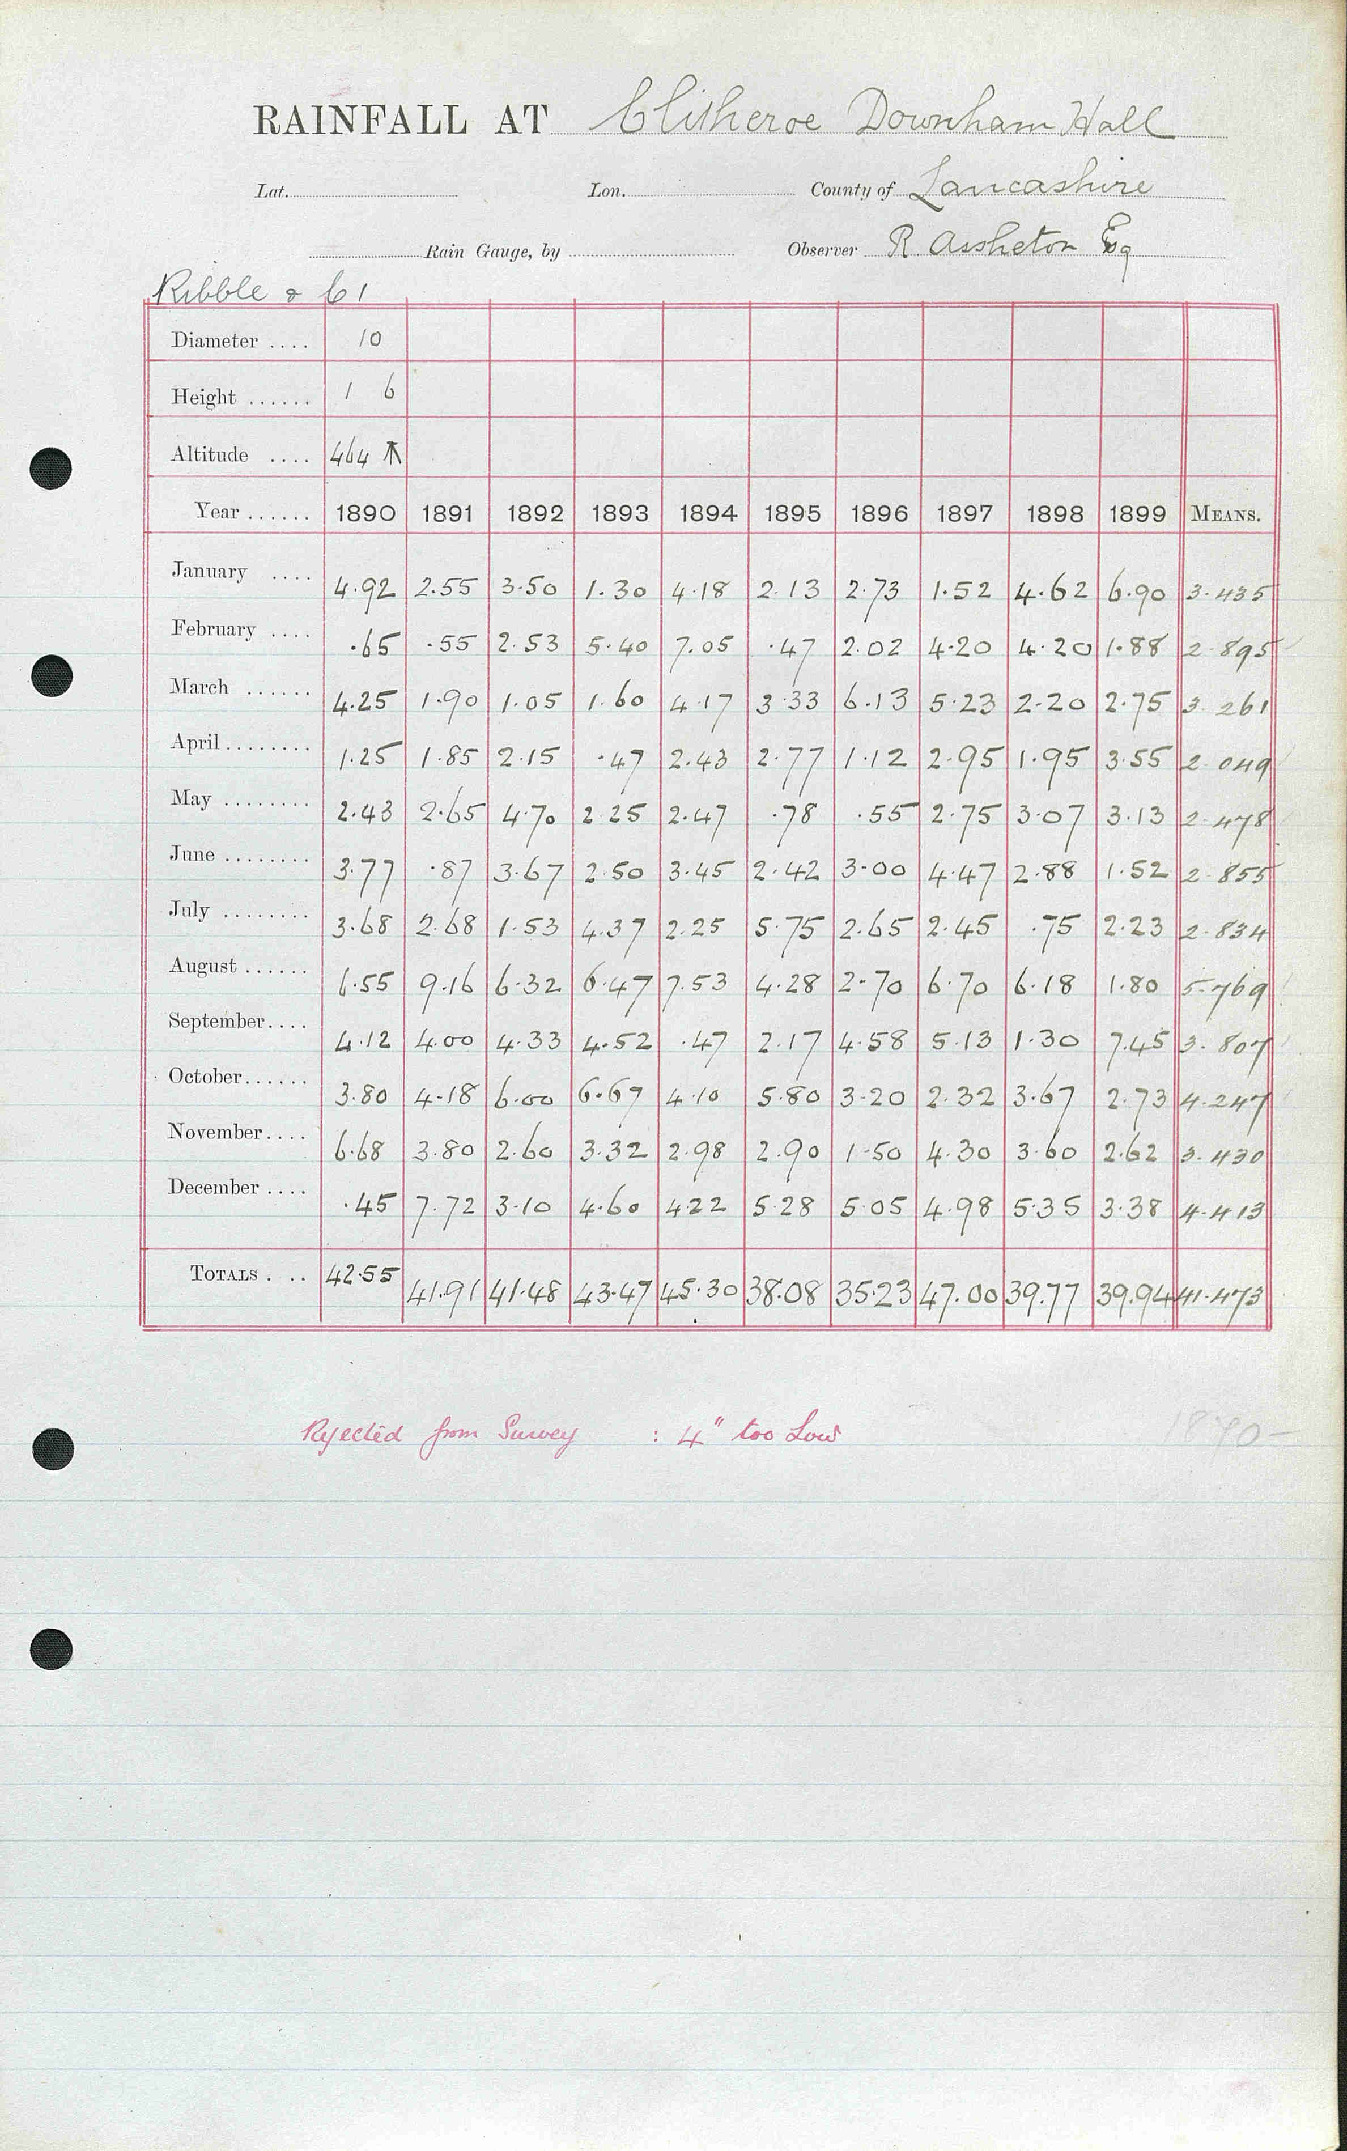 RAINFALL AT Clitheroe Downham Hall
Lat. Lon. County of Lancashire
Rain Gauge, by Observer R Assheton Esq
Ribble & C1
Diameter .... 10
Height ...... 1 6
Altitude .... 464
Year ...... 1890 1891 1892 1893 1894 1895 1896 1897 1898 1899 MEANS.
January .... 4.92 2.55 3.50 1.30 4.18 2.13 2.73 1.52 4.62 6.90 3.435
February .... .65 .55 2.53 5.40 7.05 .47 2.02 4.20 4.20 1.88 2.895
March ...... 4.25 1.90 1.05 1.60 4.17 3.33 6.13 5.23 2.20 2.75 3.261
April ........ 1.25 1.85 2.15 .47 2.43 2.77 1.12 2.95 1.95 3.55 2.049
May ........ 2.43 2.65 4.70 2.25 2.47 .78 .55 2.75 3.07 3.13 2.478
June ........ 3.77 .87 3.67 2.50 3.45 2.42 3.00 4.47 2.88 1.52 2.855
July ........ 3.68 2.68 1.53 4.37 2.25 5.75 2.65 2.45 .75 2.23 2.834
August ...... 6.55 9.16 6.32 6.47 7.53 4.28 2.70 6.70 6.18 1.80 5.769
September .... 4.12 4.00 4.33 4.52 .47 2.17 4.58 5.13 1.30 7.45 3.807
October ...... 3.80 4.18 6.00 6.67 4.10 5.80 3.20 2.32 3.67 2.73 4.247
November .... 6.68 3.80 2.60 3.32 2.98 2.90 1.50 4.30 3.60 2.62 3.430
December .... .45 7.72 3.10 4.60 4.22 5.28 5.05 4.98 5.35 3.38 4.413
TOTALS . .. 42.55 41.91 41.48 43.47 45.30 38.08 35.23 47.00 39.77 39.94 41.473
Rejected from Survey : 4" too Low
1890-